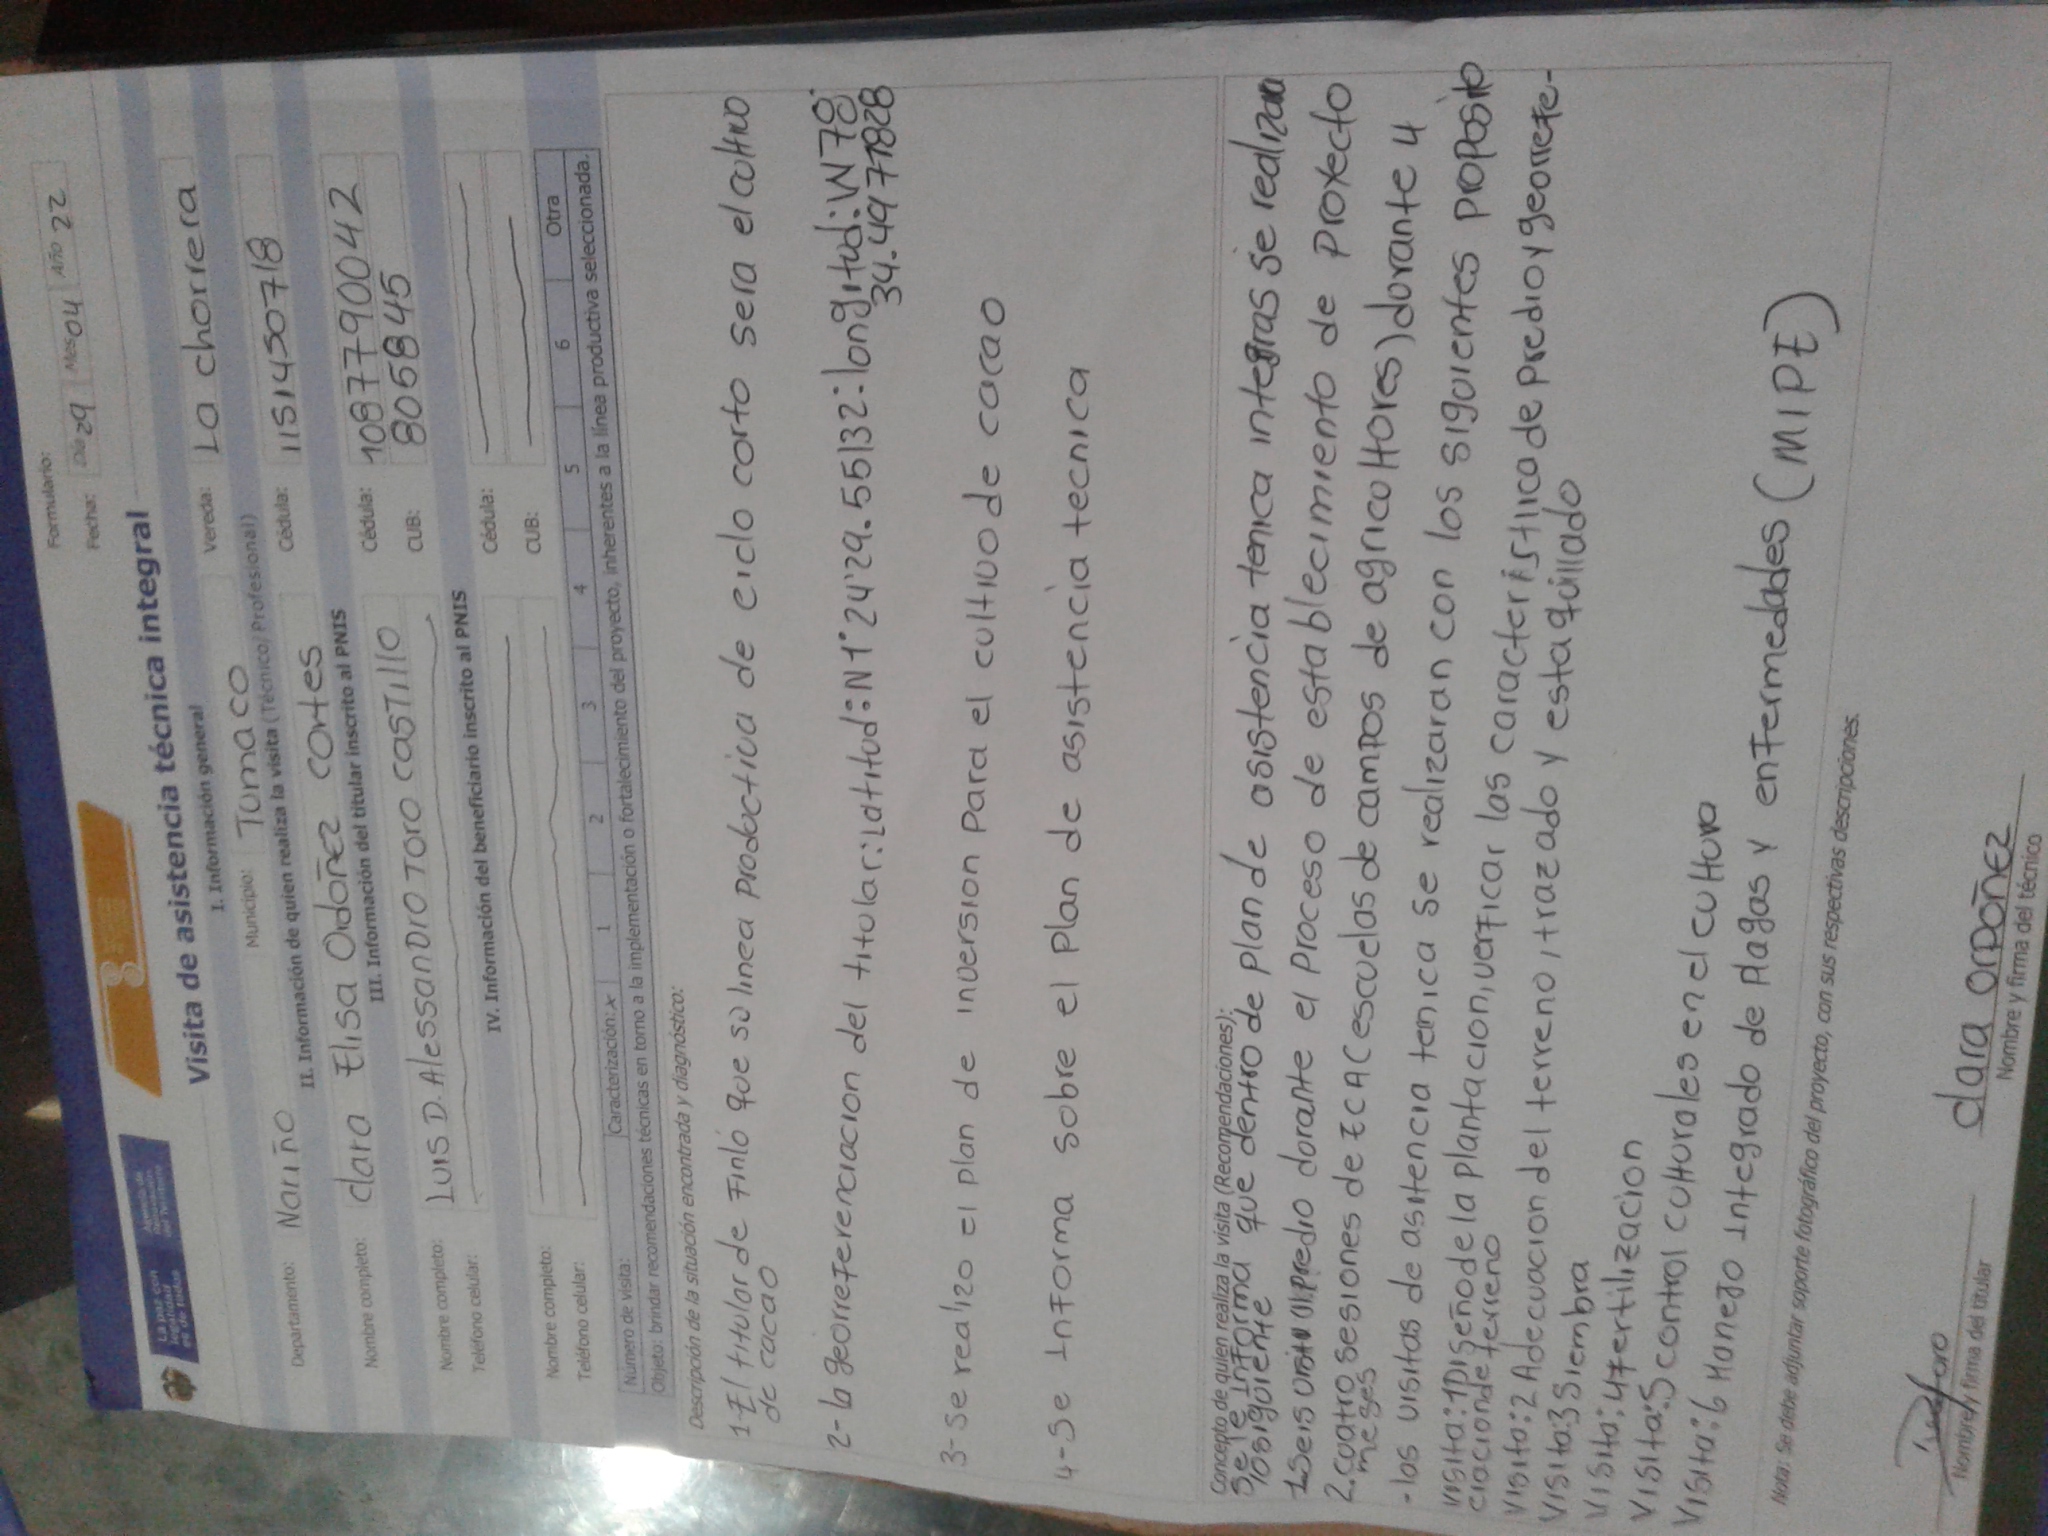 La paz con legalidad es de todos
Agencia de Renovación del Territorio
Formulario:
Fecha: Día 29 Mes 04 Año 22
Visita de asistencia técnica integral
I. Información general
Departamento: Nariño Municipio: Tumaco Vereda: La chorrera
II. Información de quien realiza la visita (Técnico, Profesional)
Nombre completo: clara Elisa Ordoñez cortes Cédula: 1151450718
III. Información del titular inscrito al PNIS
Nombre completo: LUIS D. Alessandro Toro CASTIllo Cédula: 1087790042
Teléfono celular: CUB: 8068845
IV. Información del beneficiario inscrito al PNIS
Nombre completo: Cédula:
Teléfono celular: CUB:
Número de visita: Caracterización: x 1 2 3 4 5 6 Otra
Objeto: brindar recomendaciones técnicas en torno a la implementación o fortalecimiento del proyecto, inherentes a la línea productiva seleccionada.
Descripción de la situación encontrada y diagnóstico:
1-El titular de Finió que su linea productiva de ciclo corto sera el cultivo
de cacao
2-la georreferenciacion del titular: Latitud: N1°24'29.55132: longitud: W78°
34.4971828
3-Se realizo el plan de inversion Para el cultivo de cacao
4-Se informa sobre el plan de asistencia tecnica
Concepto de quien realiza la visita (Recomendaciones):
Se le informa que dentro de plan de asistencia tenica integras se realizan
losiguiente
1.Seis visita al predio durante el proceso de establecimiento de proyecto
2.cuatro sesiones de ECA (escuelas de campos de agricultores) durante 4
meses
-los visitas de asitencia tenica se realizaran con los siguientes proposito
visita:1 Diseño de la plantacion, verficar las caracteristica de predio y georrefe-
ciacion de terreno
visita:2 Adecuacion del terreno, trazado y estaquillado
visita:3 Siembra
visita:4 Fertilizacion
visita:5 control culturales en el cultura
visita:6 Manejo integrado de plagas y enfermedades (MIPE)
Nota: Se debe adjuntar soporte fotográfico del proyecto, con sus respectivas descripciones.
clara ordoñez
Nombre y firma del titular Nombre y firma del técnico